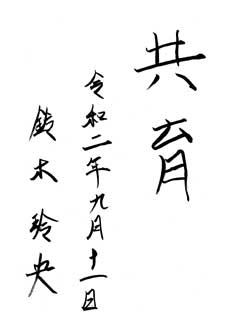 共育
令和二年九月十一日
鈴木玲央